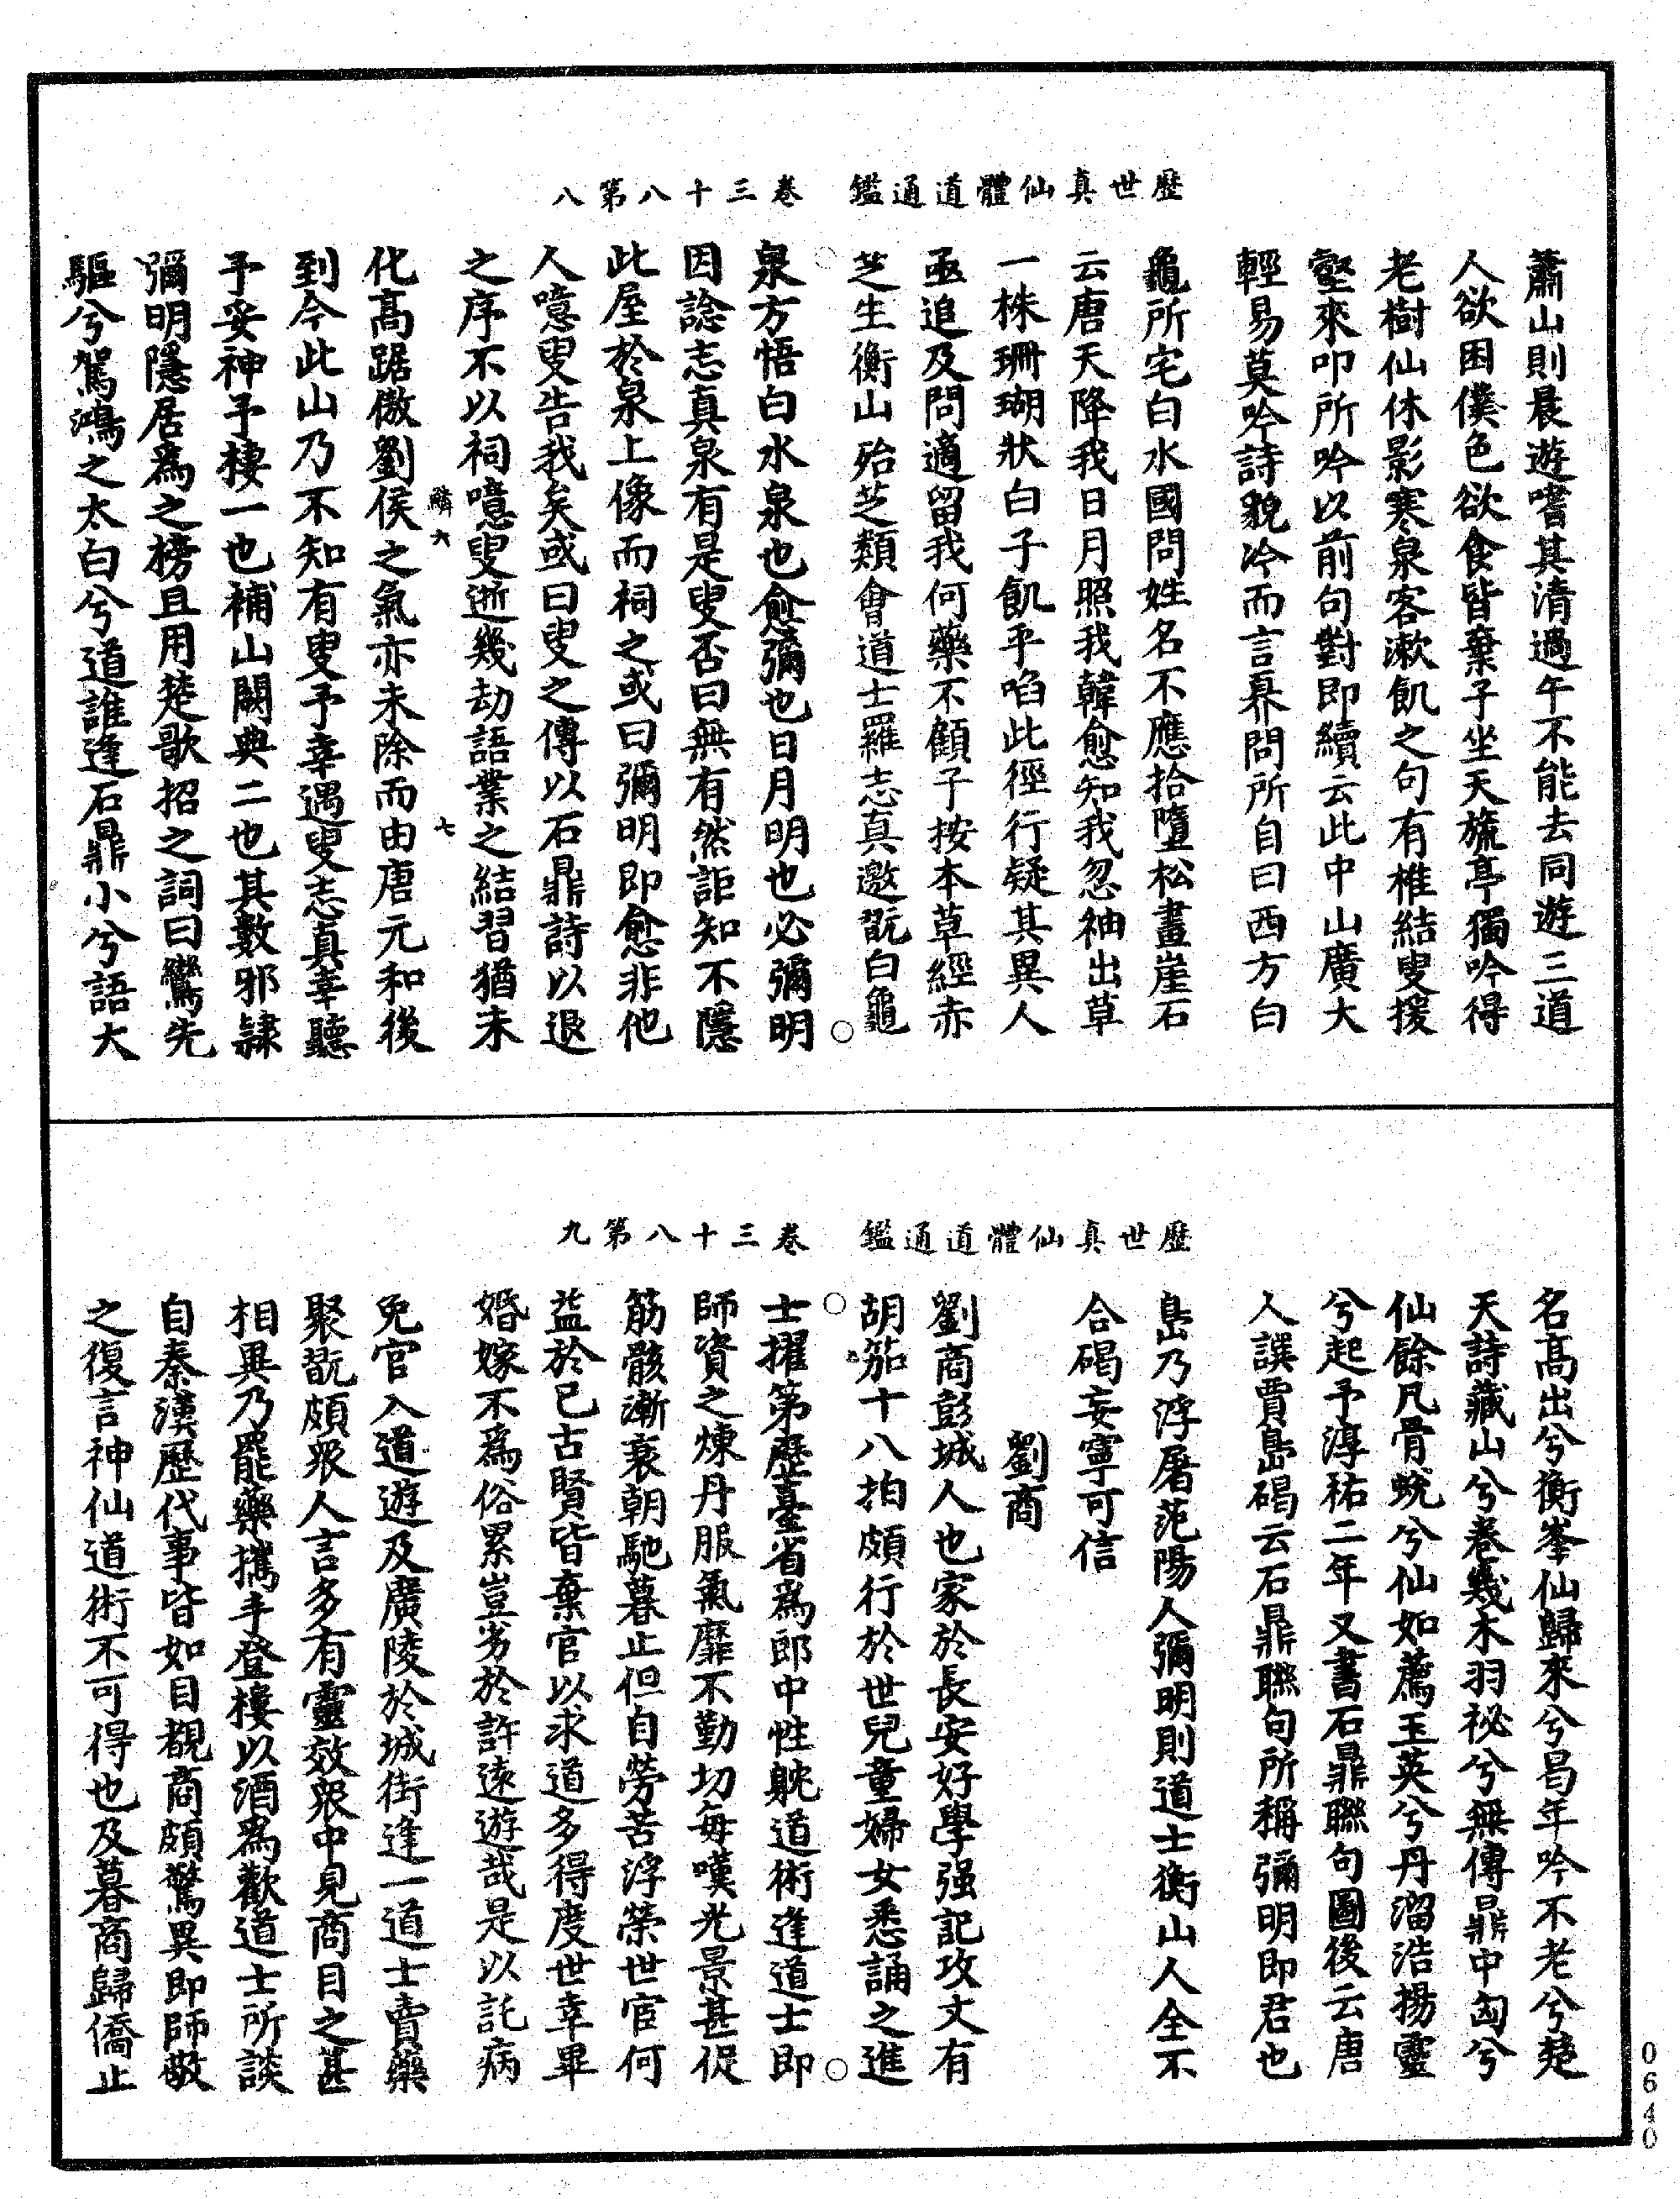 歷世真仙體道通鑑　卷三十八第八
蕭山則晨遊嗜其清過午不能去同遊三道
人欲困僕色欲食皆棄子坐天旒亭獨吟得
老樹仙休影寒泉客漱飢之句有椎結叟援
壑來叩所吟以前句對即續云此中山廣大
輕易莫吟詩貌冷而言昇問所自曰西方白
龜所宅白水國問姓名不應拾墮松畫崖石
云唐天降我日月照我韓愈知我忽袖出草
一株珊瑚狀白子飢乎啗此徑行疑其異人
亟追及問適留我何藥不顧子按本草經赤
芝生衡山殆芝類會道士羅志真邀翫白龜
泉方悟白水泉也愈彌也日月明也必彌明
因諗志真泉有是叟否曰無有然詎知不隱
此屋於泉上像而祠之或曰彌明即愈非他
人噫叟告我矣或曰叟之傳以石鼎詩以退
之序不以祠噫叟逝幾劫語業之結習猶未
鱗六　七
化高踞傲劉侯之氣亦未除而由唐元和後
到今此山乃不知有叟予幸遇叟志真幸聽
予妥神予棲一也補山闕典二也其數邪隷
彌明隱居為之榜且用楚歌招之詞曰鸞先
驅兮駕鴻之太白兮道誰逢石鼎小兮語大
歷世真仙體道通鑑　卷三十八第九
名高出兮衡峯仙歸來兮昌年吟不老兮楚
天詩藏山兮卷幾木羽祕兮無傳鼎中匈兮
仙餘凡骨蛻兮仙如薦玉英兮丹溜浩揚靈
兮起予淳祐二年又書石鼎聯句圖後云唐
人譔賈島碣云石鼎聮句所稱彌明即君也
島乃浮屠范陽人彌明則道士衡山人全不
合碣妄寧可信
劉商
劉商彭城人也家於長安好學强記攻文有
胡笳十八拍頗行於世兒童婦女悉誦之進
士擢第歷臺省為郎中性躭道術逢道士即
師資之煉丹服氣靡不勤切每嘆光景甚促
筋骸漸衰朝馳暮止但自勞苦浮榮世官何
益於已古賢皆棄官以求道多得度世幸畢
婚嫁不為俗累豈劣於許遠遊哉是以託病
免官入道遊及廣陵於城街逢一道士賣藥
聚翫頗衆人言多有靈效衆中見商目之甚
相異乃罷藥攜手登樓以酒為歡道士所談
自秦漢歷代事皆如目覩商頗驚異即師敬
之復言神仙道術不可得也及暮商歸僑止
0640